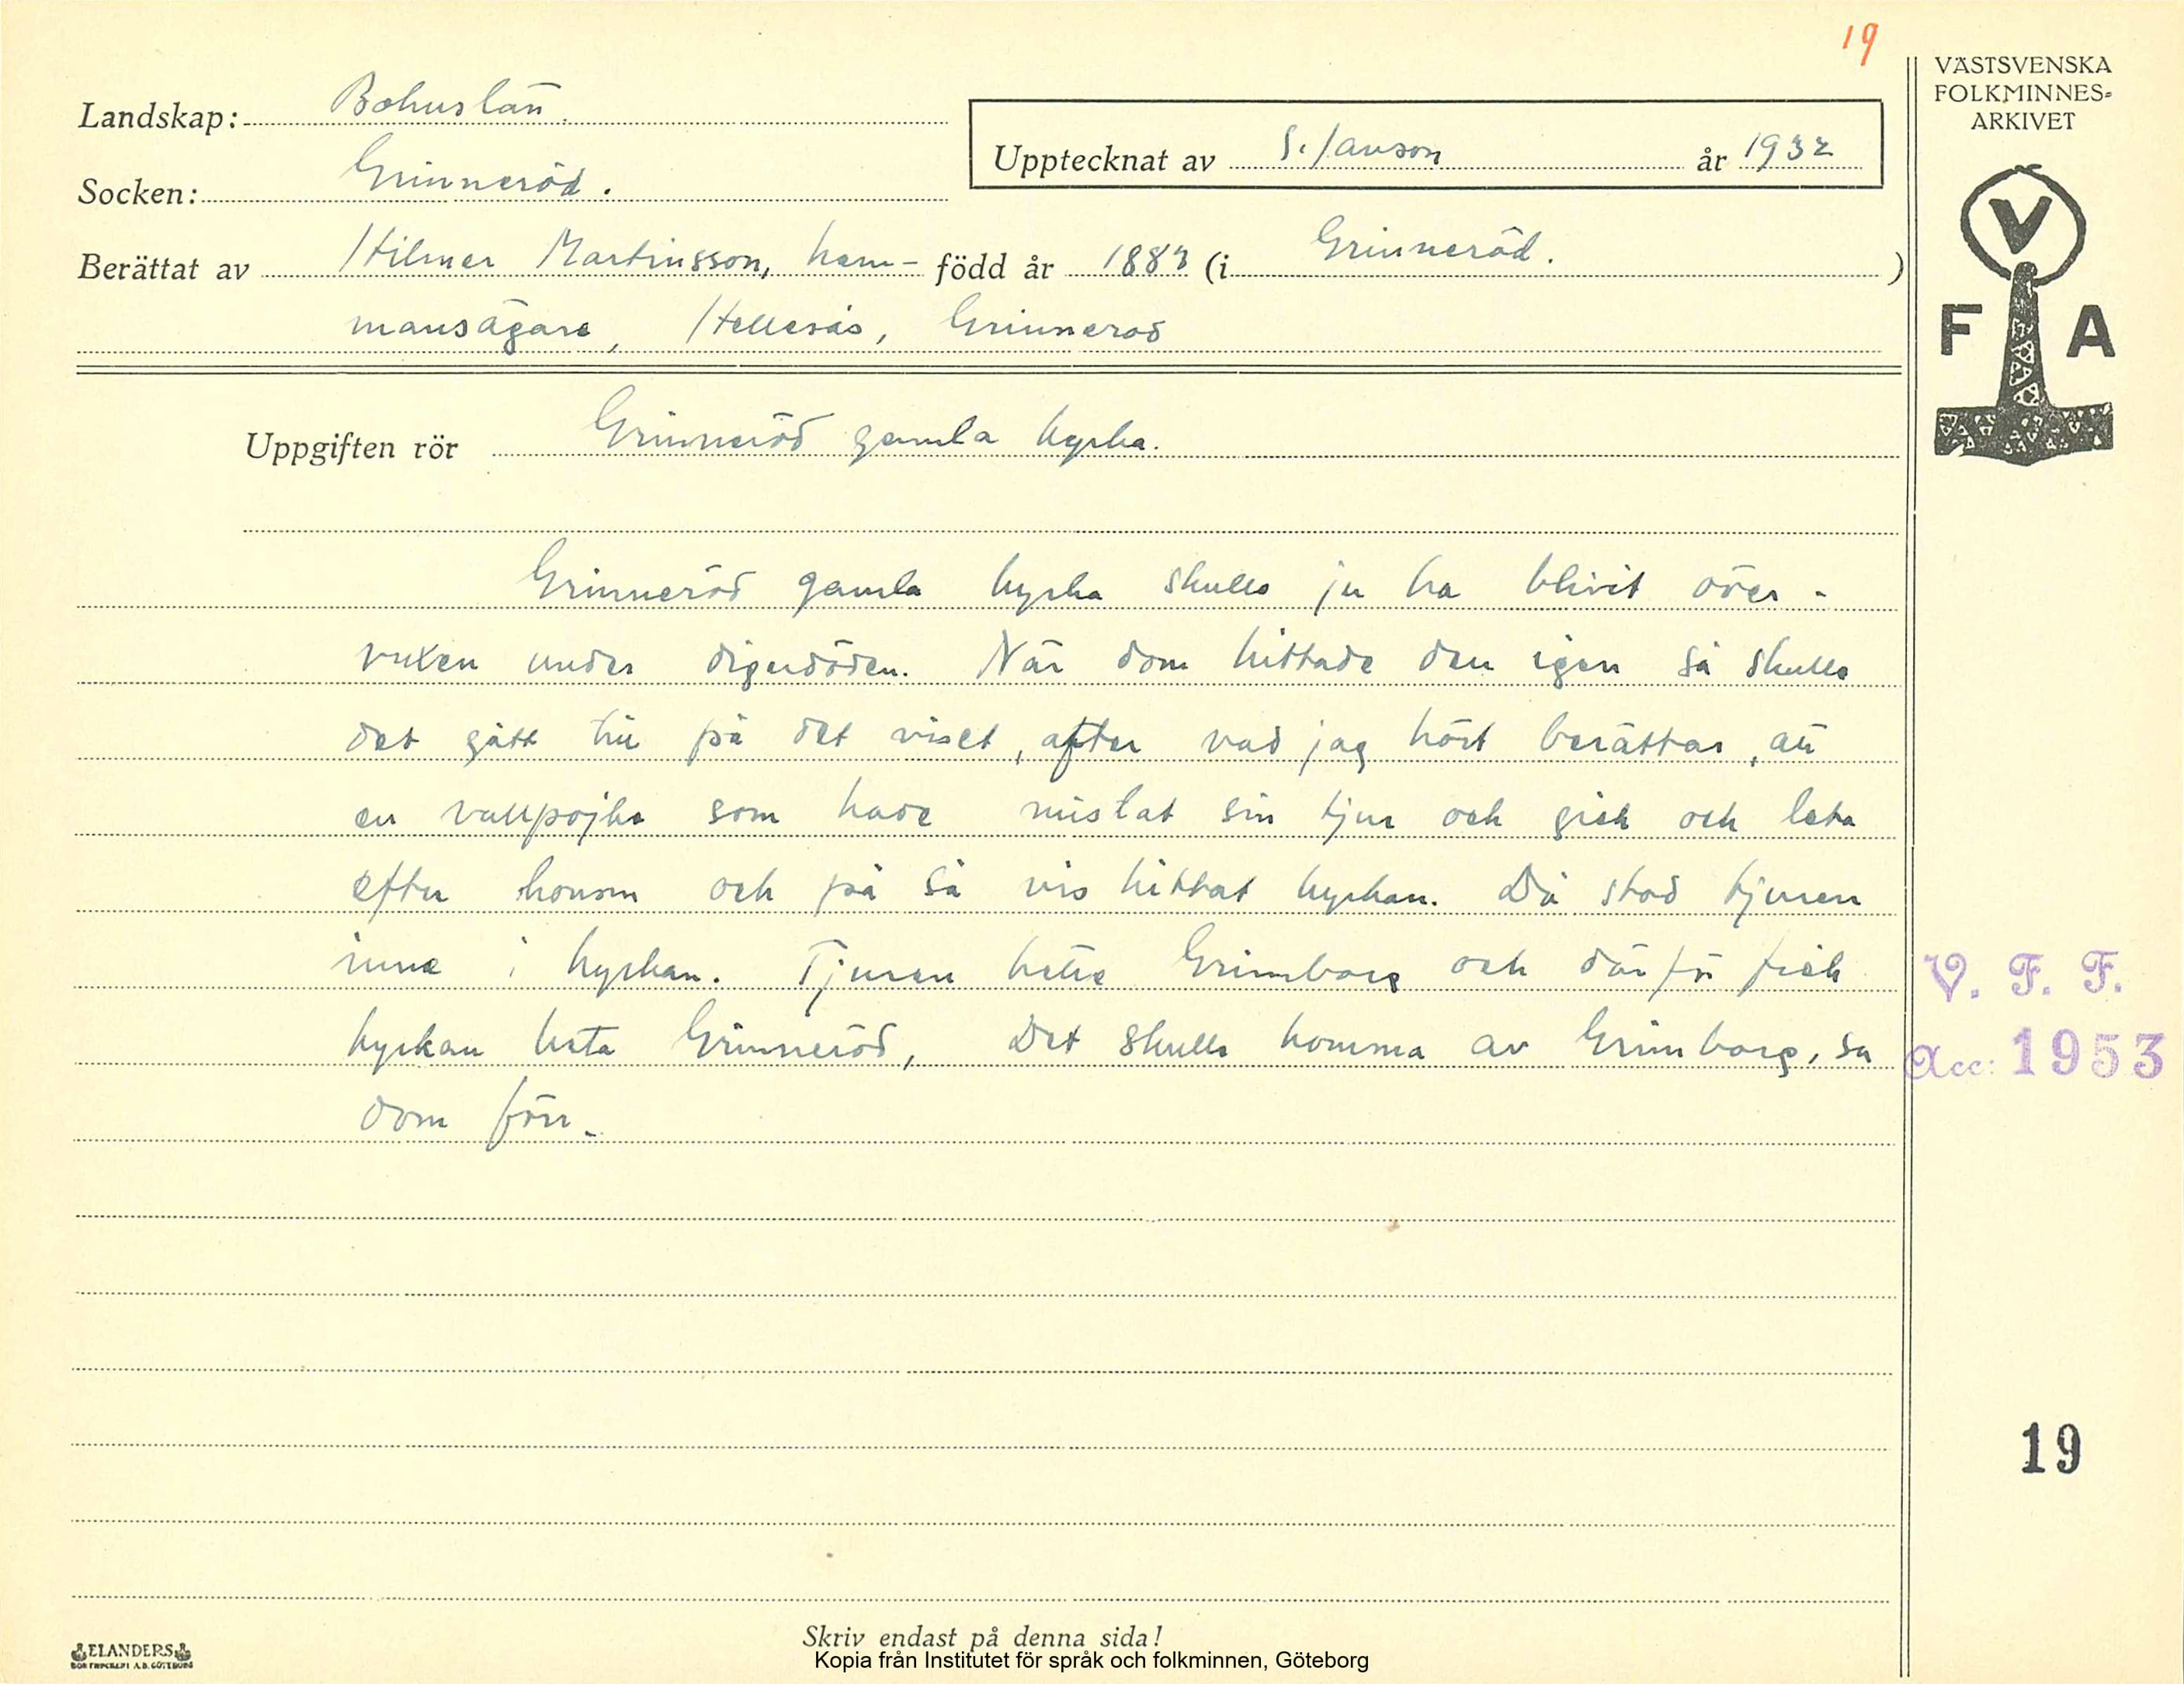 19
VÄSTSVENSKA
FOLKMINNES-
ARKIVET
Landskap: Bohuslän.
Upptecknat av S. Janson år 1932
Socken: Grinneröd.
Berättat av Hilmer Martinsson, hem- född år 1883 (i Grinneröd.)
mansägare, Hellesås, Grinneröd
V
F A
Uppgiften rör Grinneröd gamla kyrka.
Grinneröd gamla kyrka skulle ju ha blivit över-
vuxen under digerdöden. När dom hittade den igen så skulle
det gått till på det viset, efter vad jag hört berättas, att
en vallpojke som hade mistat sin tjur och gick och leta
efter honom och på så vis hittat kyrkan. Då stod tjuren
inne i kyrkan. Tjuren hette Grimborg och därför fick
kyrkan heta Grinneröd, Det skulle komma av Grimborg, sa
dom förr.
V. F. F.
Acc: 1953
19
Skriv endast på denna sida!
Kopia från Institutet för språk och folkminnen, Göteborg
ELANDERS
BOKTRYCKERI A.B. GÖTEBORG